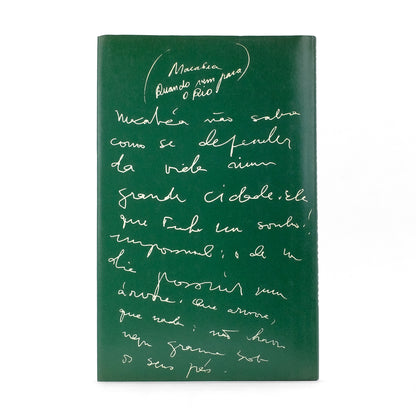 (Macabéa
Quando vem para
o Rio)
Macabéa não sabia
como se defender
da vida numa
grande cidade. Ela
que tinha um sonho
impossível: o de um
dia possuir uma
árvore. Que árvore,
que nada: não havia
nem grama sob
os seus pés.